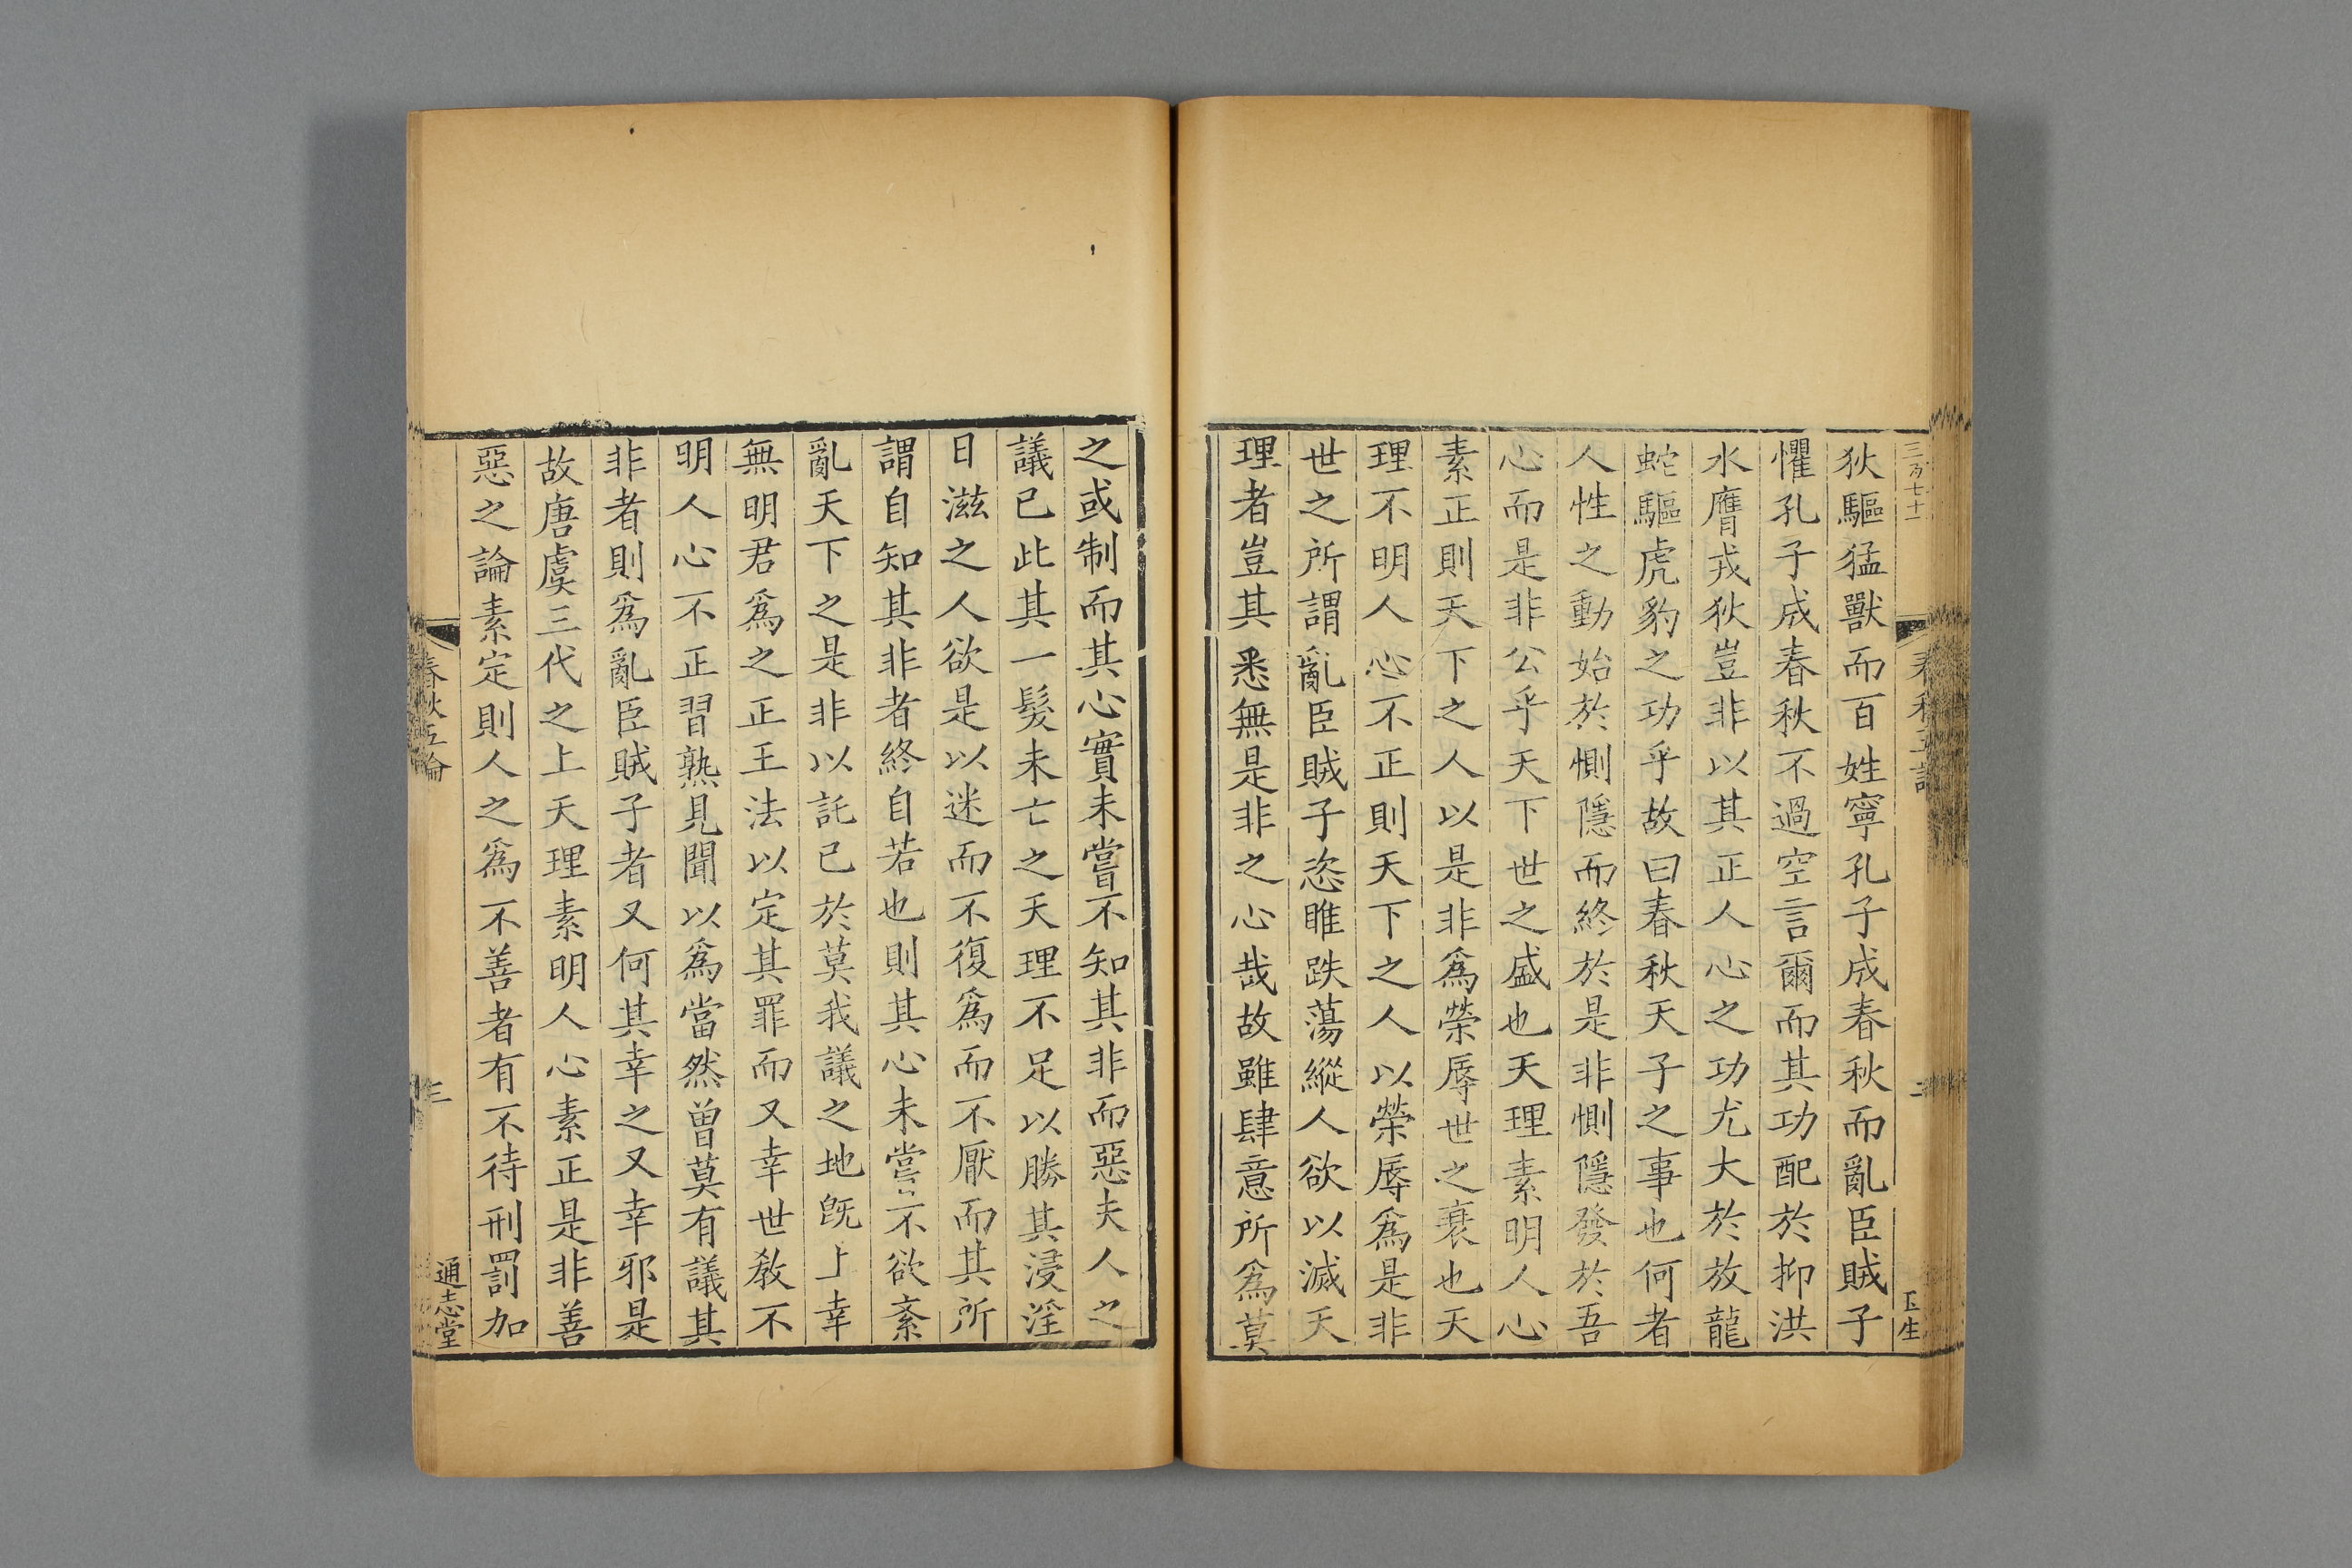 三百七十一
春秋五論
二
玉生
狄驅猛獸而百姓寧孔子成春秋而亂臣賊子
懼孔子成春秋不過空言爾而其功配於抑洪
水膺戎狄豈非以其正人心之功尤大於放龍
蛇驅虎豹之功乎故曰春秋天子之事也何者
人性之動始於惻隱而終於是非惻隱發於吾
心而是非公乎天下世之盛也天理素明人心
素正則天下之人以是非爲榮辱世之衰也天
理不明人心不正則天下之人以榮辱爲是非
世之所謂亂臣賊子恣睢跌蕩縱人欲以滅天
理者豈其悉無是非之心哉故雖肆意所爲莫
之或制而其心實未嘗不知其非而惡夫人之
議已此其一髮未亡之天理不足以勝其浸淫
日滋之人欲是以迷而不復爲而不厭而其所
謂自知其非者終自若也則其心未嘗不欲紊
亂天下之是非以託已於莫我議之地旣上幸
無明君爲之正王法以定其罪而又幸世敎不
明人心不正習熟見聞以爲當然曾莫有議其
非者則爲亂臣賊子者又何其幸之又幸邪是
故唐虞三代之上天理素明人心素正是非善
惡之論素定則人之爲不善者有不待刑罰加
春秋五論
三
通志堂